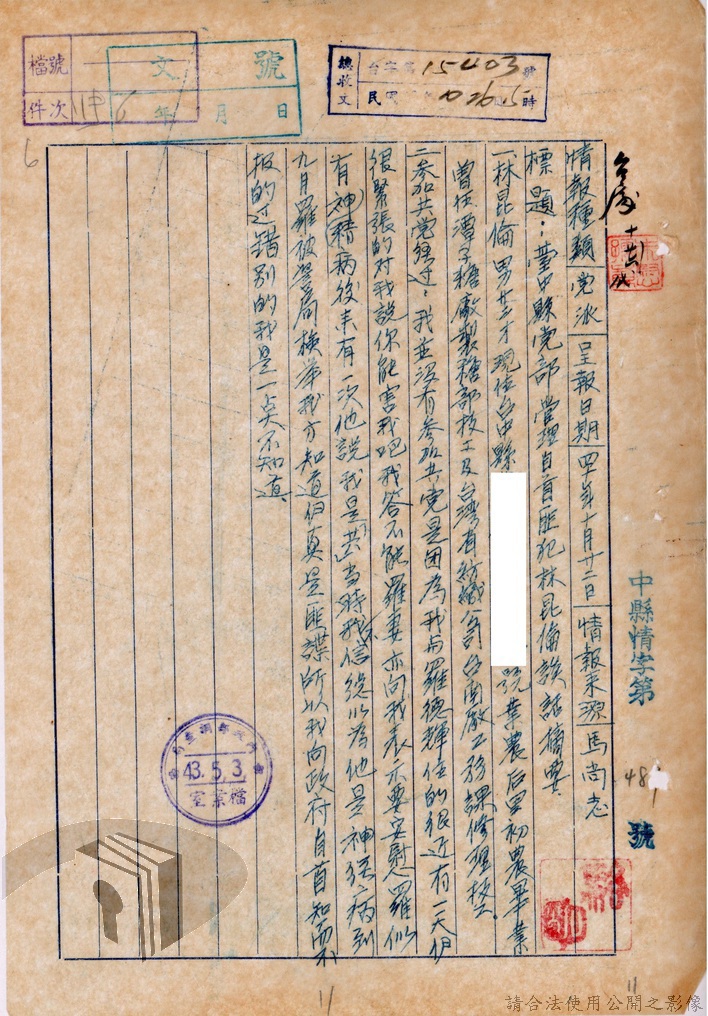 檔號
件次
文號
年 月 日
總收文
台字第15403號
中縣情字第
號
情報種類 党派 呈報日期 四十年十月廿二日 情報來源 馬尚志
標題：臺中縣党部管理自首匪犯林昆倫談話摘要
一林昆倫男廿三才現住台中縣
號業農后里初農畢業
曾任潭子糖廠製糖部技工及台灣省紡織公司台南廠工務課修理技工。
二參加共党経过：我並沒有參加共党是因為我与羅德輝住的很近有一天伊
很緊張的对我說你能害我吧我答不能羅妻亦向我表示要安慰羅似
有神精病後来有一次他說我是「共」当時我不信総以為他是神経病到
九月羅被警局檢举我方知道伊真是匪諜所以我向政府自首知而不
报的过錯別的我是一点不知道
43.5.3.
檔案室
請合法使用公開之影像